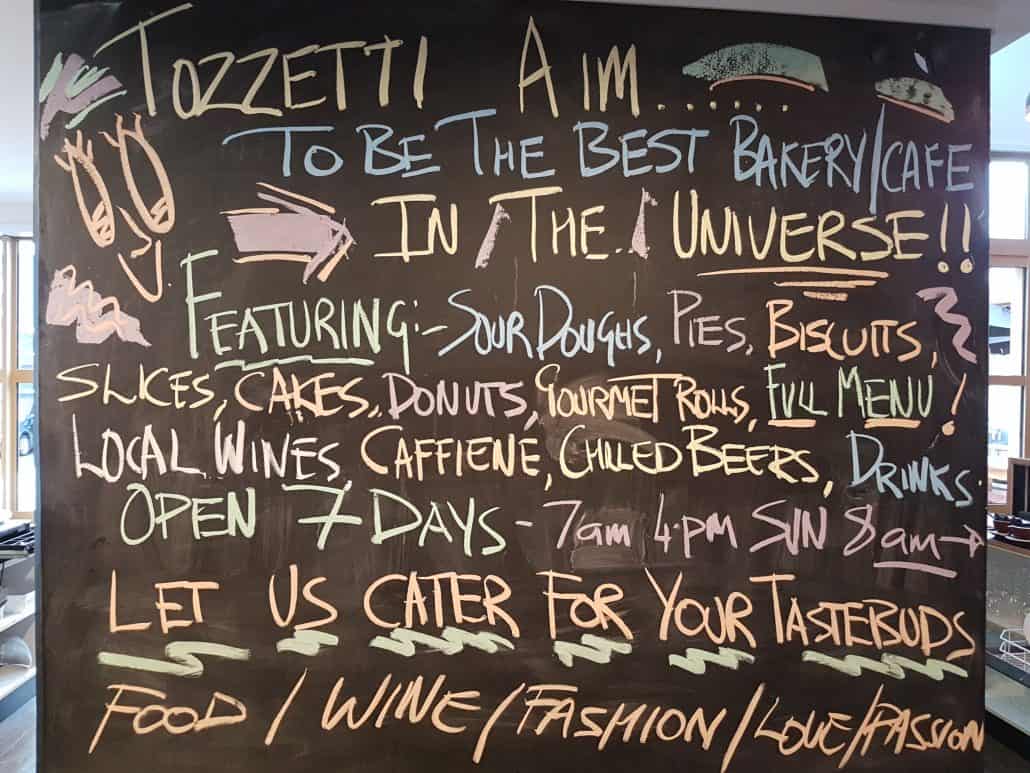 TOZZETTI AIM........
TO BE THE BEST BAKERY/CAFE
IN / THE.. / UNIVERSE!!
FEATURING:- SOUR DOUGHS, PIES, BISCUITS,
SLICES, CAKES, DONUTS, GOURMET ROLLS, FULL MENU!
LOCAL WINES, CAFFIENE, CHILLED BEERS, DRINKS.
OPEN 7 DAYS - 7am 4pm SUN 8am →
LET US CATER FOR YOUR TASTEBUDS
FOOD / WINE / FASHION / LOVE / PASSION